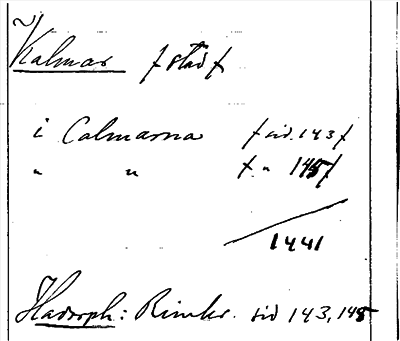 Kalmar / stad /
i Calmarna / sid. 143 /
" " / " 145 /
1441
Hadorph: Rimkr. sid 143, 145